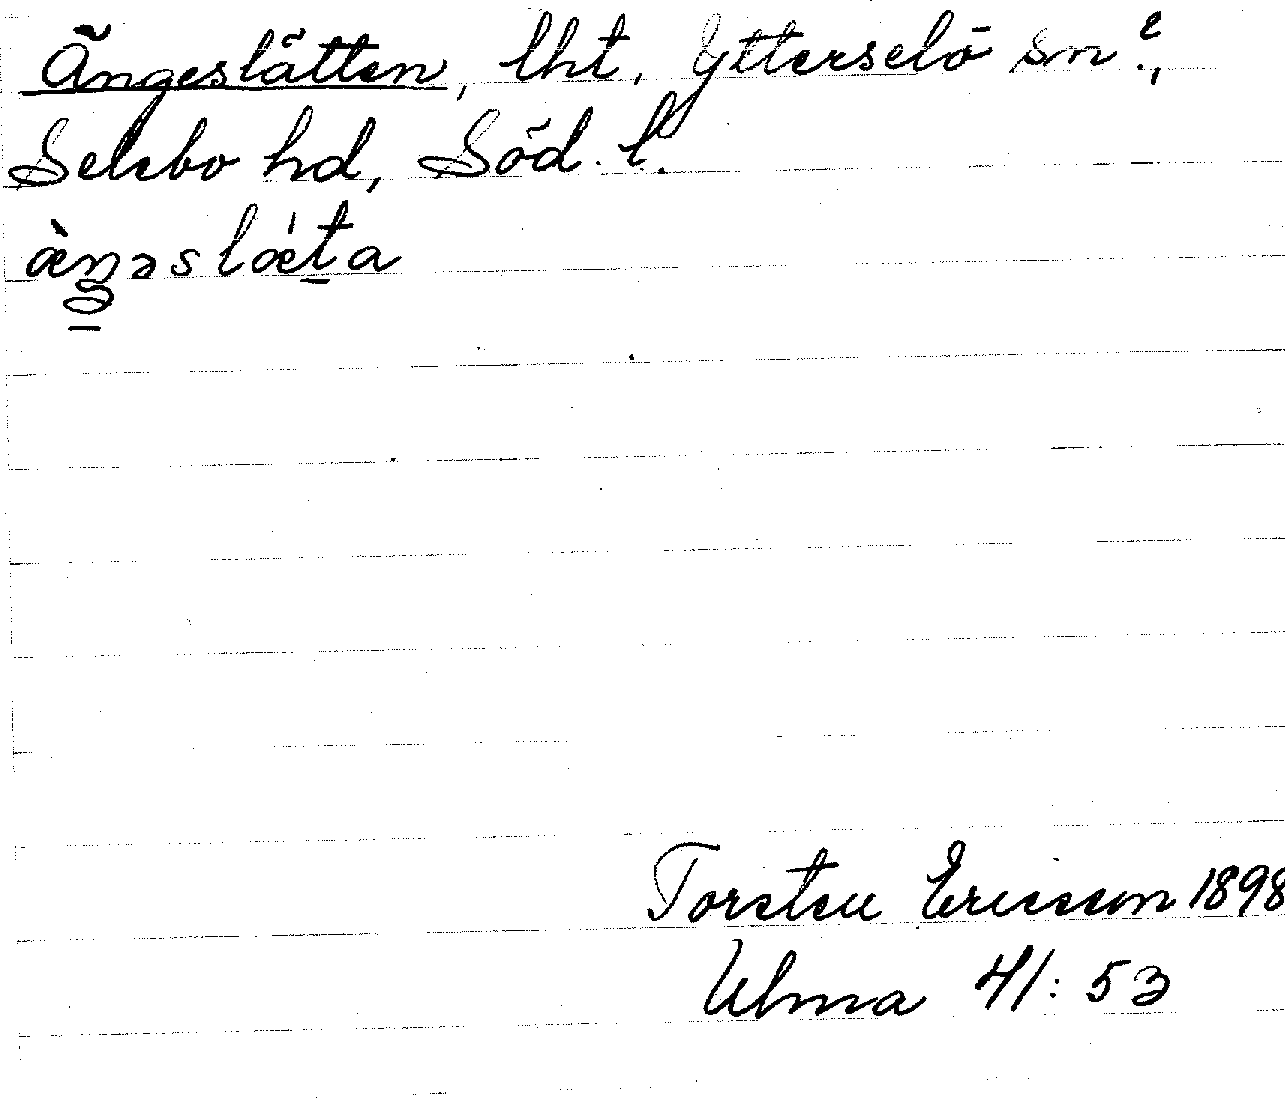 Ängeslätten, lht, Ytterselö sn?,
Selebo hd, Söd. l.
æ̀ŋəslǽt̠a
Torsten Ericsson 1898
Ulma 41:53